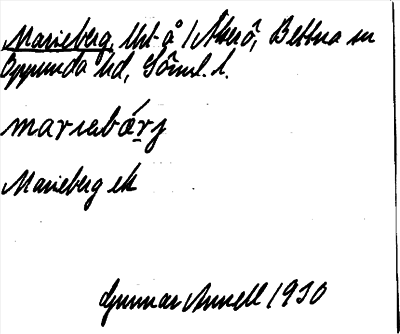 Marieberg, lht å /Åkerö, Bettna sn
Oppunda hd, Sörml. l.
marıebárj
Marieberg ek
Gunnar Annell 1930